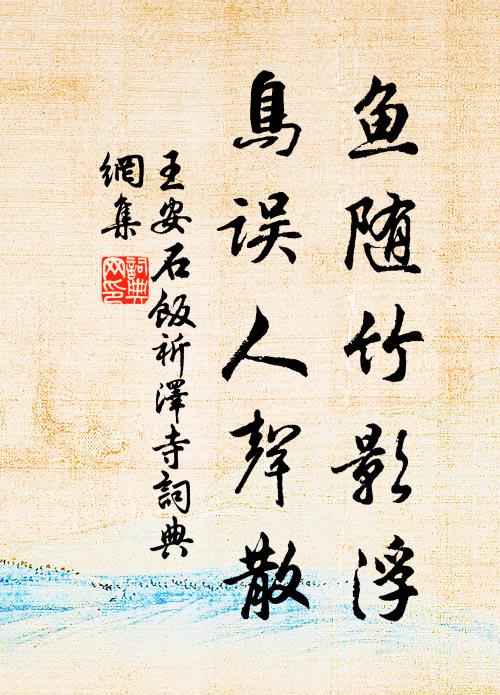 鱼随竹影浮
鳥误人聲散
王安石飯祈澤寺詞典
網集
詞典
网印